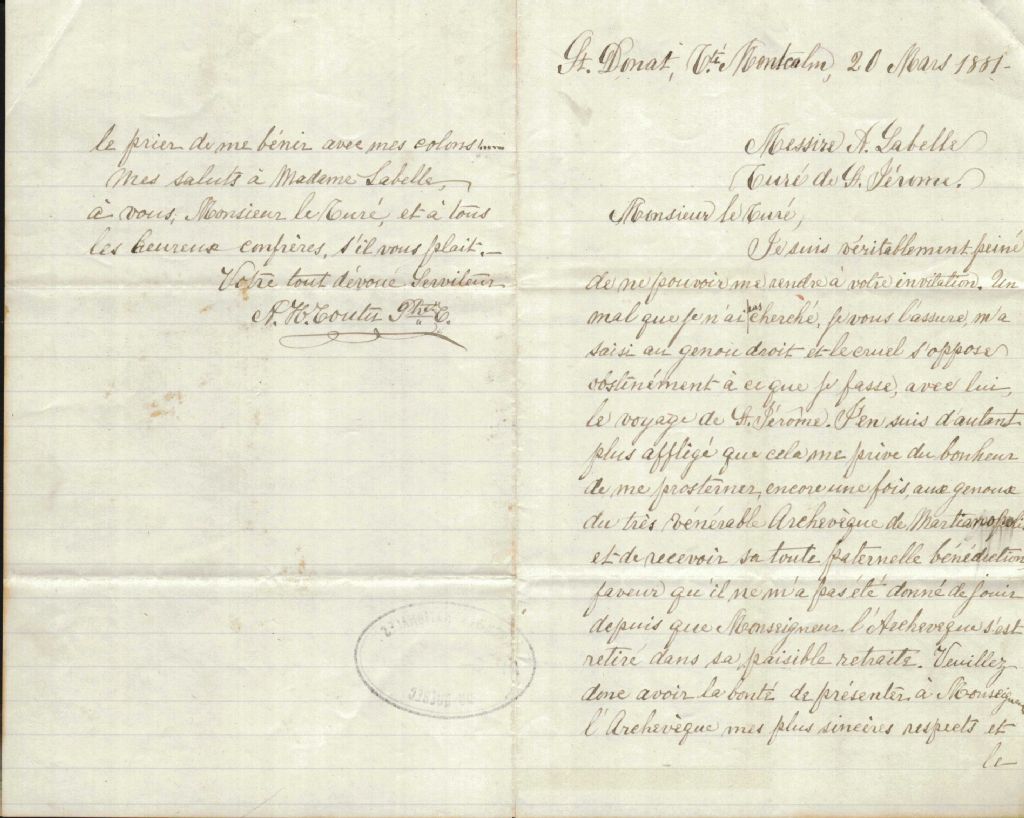 St. Donat, Cté Montcalm, 20 Mars 1881-
Messire A. Labelle
Curé de St. Jérome.
Monsieur le Curé,
Je suis véritablement peiné
de ne pouvoir me rendre à votre invitation. Un
mal que je n'ai pas cherché, je vous l'assure, m'a
saisi au genou droit et le cruel s'oppose
obstinément à ce que je fasse, avec lui,
le voyage de St. Jérôme. J'en suis d'autant
plus affligé que cela me prive du bonheur
de me prosterner, encore une fois, aux genoux
du très vénérable Archevèque de Martianopolis
et de recevoir sa toute paternelle bénédiction,
faveur qu'il ne m'a pas été donné de jouir
depuis que Monseigneur l'Archevèque s'est
retiré dans sa paisible retraite. Veuillez
donc avoir la bonté de présenter à Monseigneur
l'Archevèque mes plus sincères respects et
le
le prier de me bénir avec mes colons
Mes saluts à Madame Labelle,
à vous, Monsieur le Curé, et à tous
les heureux confrères, s'il vous plait.-
Votre tout dévoué Serviteur
A. H. Coutu Ptre C.